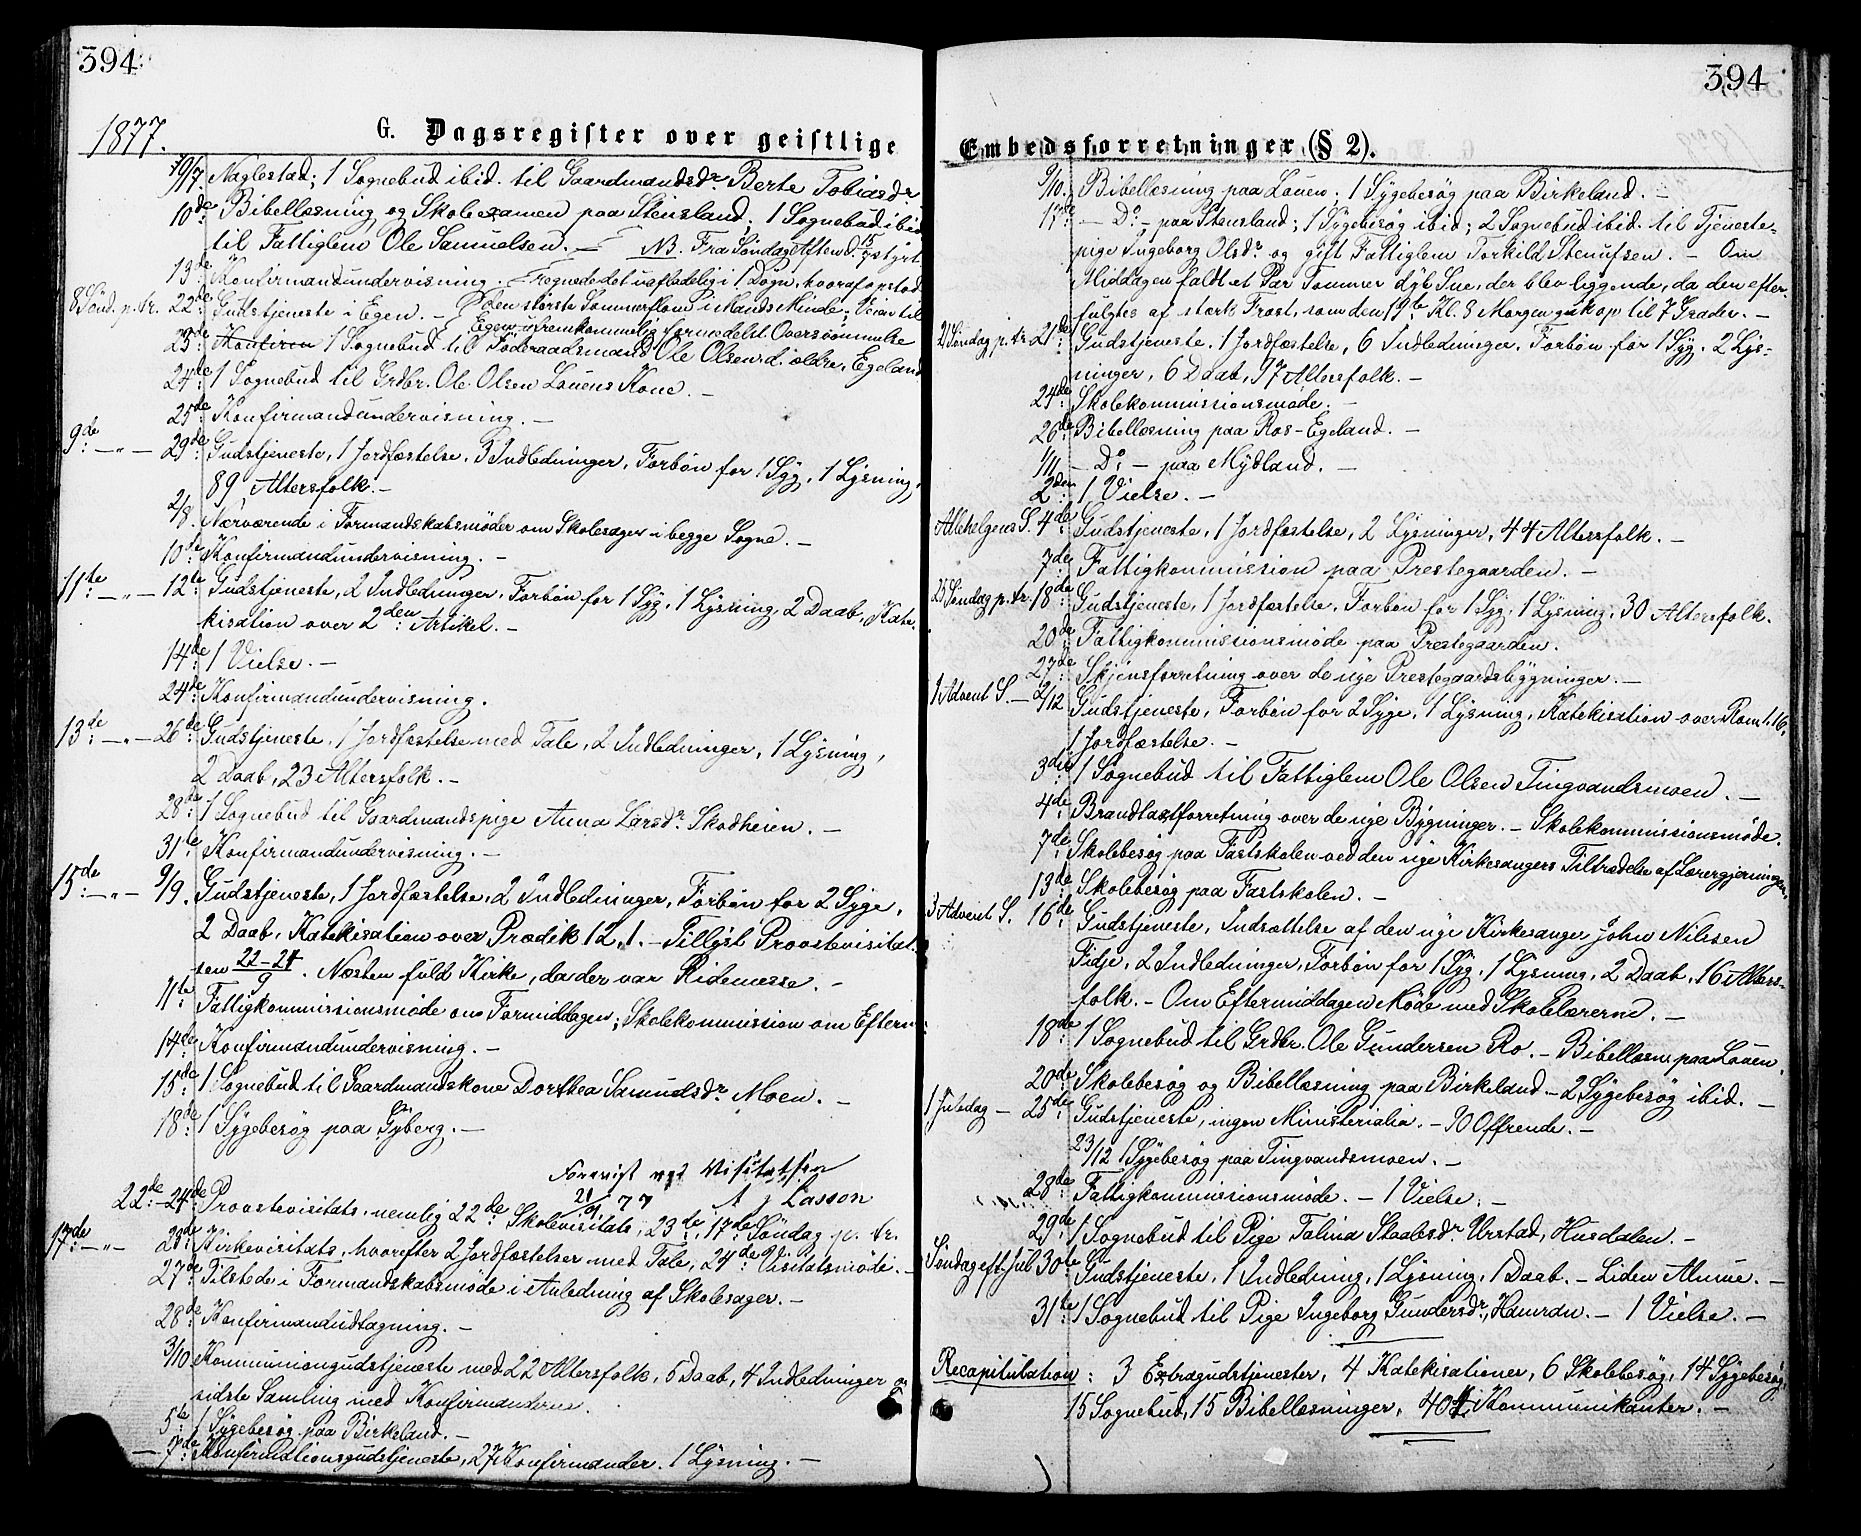 394
1877.
G. Dagsregister over geistlige
9/7. Naglestad; 1 Sognebud ibid. til Gaardmandsdr. Berte Tobiasdr
10de Bibellæsning og Skoleexamen paa Stensland; 1 Sognebud ibid
til Fattiglem Ole Samuelsen. — NB. Fra Søndag Aften d. 15/7 styrt
13de Konfirmandundervisning. — regnede det uafladelig i 1 Døgn, hvoraf opstod
8 Sønd. p. tr. 22de Gudstjeneste i Egen. — den største Sommerflom i Mands Minde; Veien til
Egen ufremkommelig formedelst Oversvømmelse
23de Konfirm 1 Sognebud til Føderaadsmand Ole Olsen d. ældre, Egeland
24de 1 Sognebud til Grdbr. Ole Olsen Louens Kone. —
25de Konfirmandundervisning. —
9de — " — 29de Gudstjeneste, 1 Jordfæstelse, 3 Indledninger, Forbøn for 1 Syg, 1 Lysning,
89 Altersfolk. —
2/8. Nærværende i Formandskabsmøder om Skolesager i begge Sogne. —
10de Konfirmandundervisning. —
11te — " — 12te Gudstjeneste, 2 Indledninger, Forbøn for 1 Syg, 1 Lysning, 2 Daab, Kate-
kisation over 2den Artikel. —
14de 1 Vielse. —
24de Konfirmandundervisning.
13de — " — 26de Gudstjeneste, 1 Jordfæstelse med Tale, 2 Indledninger, 1 Lysning,
2 Daab, 23 Altersfolk. —
28de 1 Sognebud til Gaardmandspige Anna Larsdr. Skodheien. —
31te Konfirmandundervisning. —
15de — " — 9/9. Gudstjeneste, 1 Jordfæstelse, 2 Indledninger, Forbøn for 2 Syge,
2 Daab, Katekisation over Prædik 12,1. — Tillyst Provstevisitat-
sen 22-24/9. Næsten fuld Kirke, da der var Ridemesse. —
11te Fattigkommissionsmøde om Formiddagen; Skolekommission om Efterm.
14de Konfirmandundervisning. —
15de 1 Sognebud til Gaardmandskone Dorthea Samuelsdr. Moen. —
18de 1 Sygebesøg paa Gyberg. —
Forevist ved Visitatsen
21/9 77 A J Lasson
22de-24de Provstevisitats, nemlig 22de Skolevisitats, 23de, 17de Søndag p. tr.
17de — " — 23de Kirkevisitats, hvorefter 2 Jordfæstelser med Tale, 24de Visitatsmøde. —
27de Tilstede i Formandskabsmøde i Anledning af Skolesager. —
28de Konfirmandudtagning. —
3/10 Kommuniongudstjeneste med 22 Altersfolk, 5 Daab, 4 Indledninger og
sidste Samling med Konfirmanderne.
5te 1 Sygebesøg paa Birkeland. —
— 7de Konfirmationsgudstjeneste, 27 Konfirmander. 1 Lysning. —
394
Embedsforretninger (§ 2).
9/10. Bibellæsning paa Louen; 1 Sygebesøg paa Birkeland. —
17de — Do. — paa Stensland; 1 Sygebesøg ibid; 2 Sognebud ibid. til Tjeneste-
pige Ingeborg Olsdr. og gift Fattiglem Torkild Stenufsen. — Om
Middagen faldt et Par Tommer dyb Sne, der blev liggende, da den efter-
fulgtes af stærk Frost, som den 19de Kl. 8 Morgen gik op til 7 Grader. —
21 Søndag p. tr. 21de Gudstjeneste, 1 Jordfæstelse, 6 Indledninger, Forbøn for 1 Syg, 2 Lys-
ninger, 6 Daab, 97 Altersfolk. —
24de Skolekommissionsmøde. —
26de Bibellæsning paa Ros-Egeland. —
1/11 — Do. — paa Mydland. —
2den 1 Vielse. —
Allehelgens S. 4de Gudstjeneste, 1 Jordfæstelse, 2 Lysninger, 44 Altersfolk. —
7de Fattigkommission paa Prestegaarden. —
25 Søndag p. tr. 18de Gudstjeneste, 1 Jordfæstelse, Forbøn for 1 Syg, 1 Lysning, 30 Altersfolk.
20de Fattigkommissionsmøde paa Prestegaarden.
27de Skjønsforretning over de nye Prestegaardsbygninger. —
1 Advent S. — 2/12 Gudstjeneste, Forbøn for 2 Syge, 1 Lysning, Katekisation over Rom. 1,16,
1 Jordfæstelse. —
3die 1 Sognebud til Fattiglem Ole Olsen Tingvandsmoen. —
4de Brandtaxtforretning over de nye Bygninger. — Skolekommissionsmøde.
7de Skolebesøg paa Fastskolen ved den nye Kirkesangers Tiltrædelse af Lærergjerningen.
13de Skolebesøg paa Fastskolen. —
3 Advent S. 16de Gudstjeneste, Indsættelse af den nye Kirkesanger John Nilssen
Fidje, 2 Indledninger, Forbøn for 1 Syg, 1 Lysning, 2 Daab, 16 Alters-
folk. — Om Eftermiddagen Møde med Skolelærerne. —
18de 1 Sognebud til Grdbr. Ole Gundersen Ro. — Bibellæsn. paa Louen.
20de Skolebesøg og Bibellæsning paa Birkeland — 2 Sygebesøg ibid. —
1 Juledag — 25de Gudstjeneste, ingen Ministerialia. — 90 Offrende. —
23/12 1 Sygebesøg paa Tingvandsmoen. —
28de Fattigkommissionsmøde. — 1 Vielse. —
29de 1 Sognebud til Pige Talina Staalesdr. Urstad, Husdalen. —
Søndag eft. Jul 30te Gudstjeneste, 1 Indledning, 1 Lysning, 1 Daab. — Liden Almue. —
31te 1 Sognebud til Pige Ingeborg Gundersdr., Hamran. — 1 Vielse. —
Recapitulation: 3 Extragudstjenester, 4 Katekisationer, 6 Skolebesøg, 14 Sygebesøg,
15 Sognebud, 15 Bibellæsninger, Kommunikanter. —